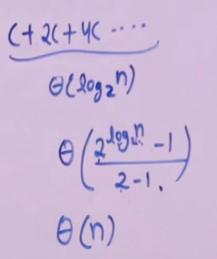 C+2C+4C ....
θ(log₂n)
θ(2^log₂n - 1 / 2-1)
θ(n)